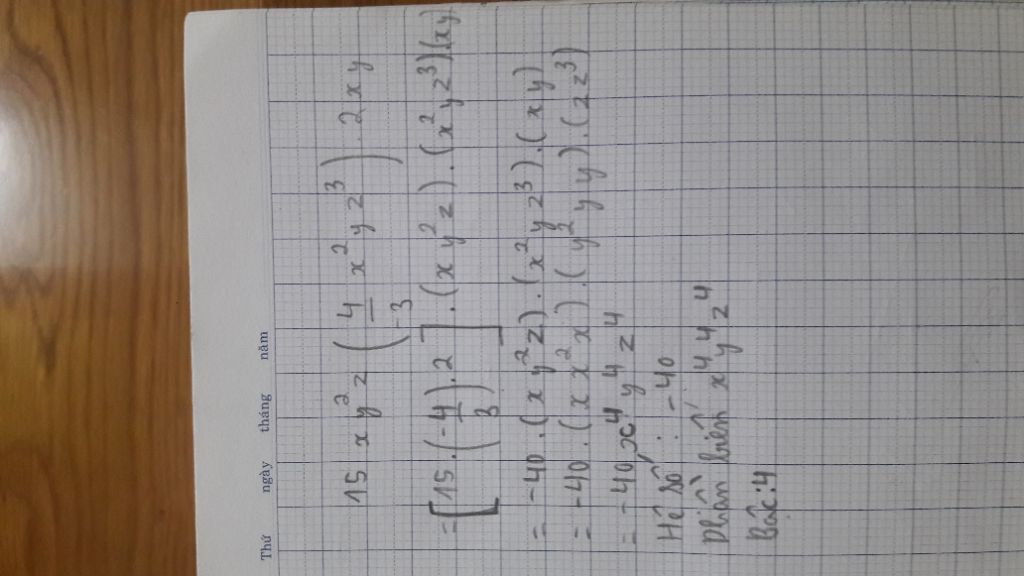 Thứ ngày tháng năm
15 xy²z (4/-3 x²yz³) . 2xy
= [15 . (-4/3) . 2] . (xy²z) . (x²yz³)(xy)
= -40 . (xy²z) . (x²yz³) . (xy)
= -40 . (xx²x) . (y²yy) . (zz³)
= -40 x⁴y⁴z⁴
Hệ số : -40
Phần biến x⁴y⁴z⁴
Bậc : 4